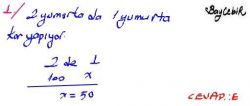 1/ 2 yumurtada 1 yumurta
kar yapıyor.
Baycebir
2 de 1
100 x
x = 50
CEVAP: E